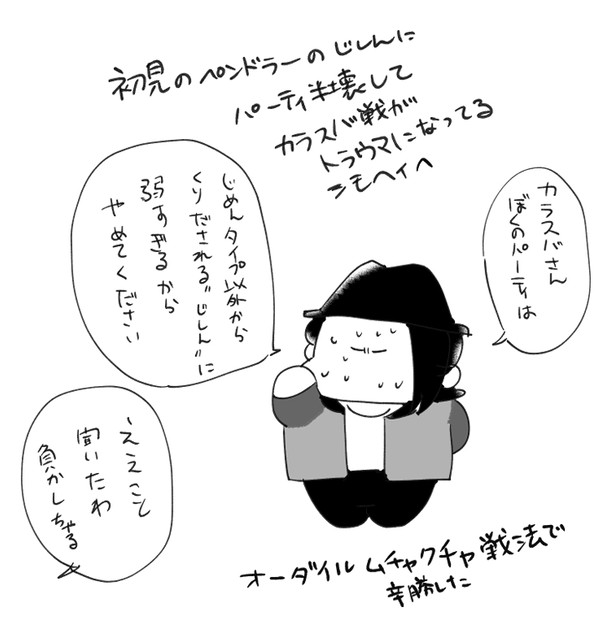 初見のペンドラーのじしんに
パーティ半壊して
カラスバ戦が
トラウマになってる
シモヘイヘ
カラスバさん
ぼくのパーティは
じめんタイプ以外から
くりだされる"じしん"に
弱すぎるから
やめてください
ええこと
聞いたわ
負かしちゃる
オーダイル ムチャクチャ戦法で
辛勝した